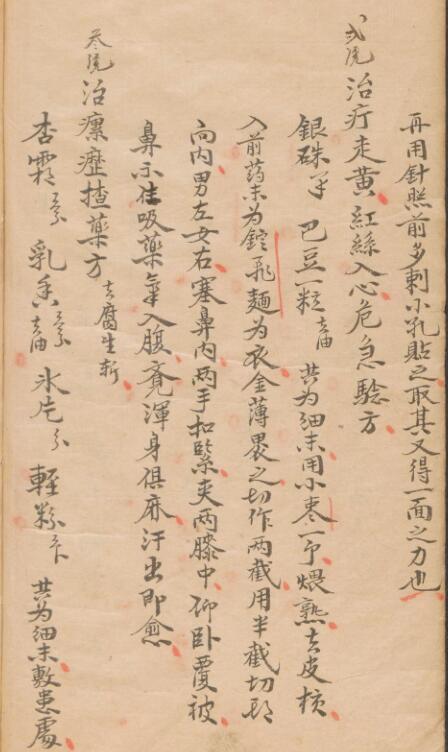 再用針照前多刺小乳貼之取其又得一面之力也
弍號 治疔走黃紅絲入心危急驗方
銀硃 巴豆一粒去油 共为細末用小枣一个煨熟去皮核
入前药末为錠飛麵为衣金薄裹之切作两截用半截切
向内男左女右塞鼻内两手扣緊夹两膝中仰卧覆被
鼻示住吸藥氣入腹竟渾身俱麻汗出即愈
叁號 治瘰癧揸藥方 去腐生新
杏霜 乳香去油 氷片 輕粉 共为細末敷患處